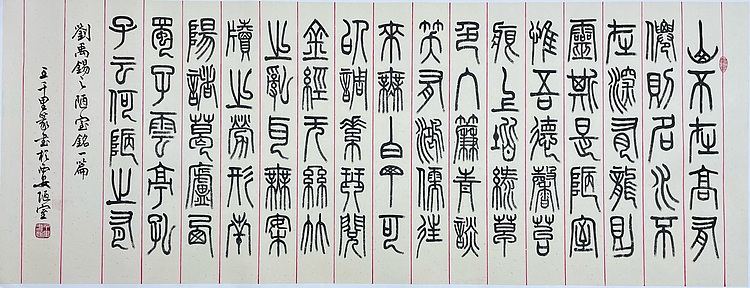 山不在高有
僊則名水不
在深有龍則
靈斯是陋室
惟吾德馨苔
痕上階綠草
色入簾青談
笑有鴻儒往
來無白丁可
以調素琴閱
金經无絲竹
之亂耳無案
牘之勞形南
陽諸葛廬西
蜀子雲亭孔
子云何陋之有
劉禹錫之陋室銘一篇
王千里篆書於西安陋室